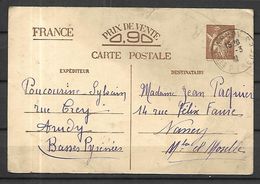 FRANCE
PRIX DE VENTE
0,90
CARTE POSTALE
EXPÉDITEUR
DESTINATAIRE
Sylvain
Madame Jean Paquier
rue
14 rue Félix Faure
Arudy
Nancy
Basses Pyrénées
Mthe et Moselle